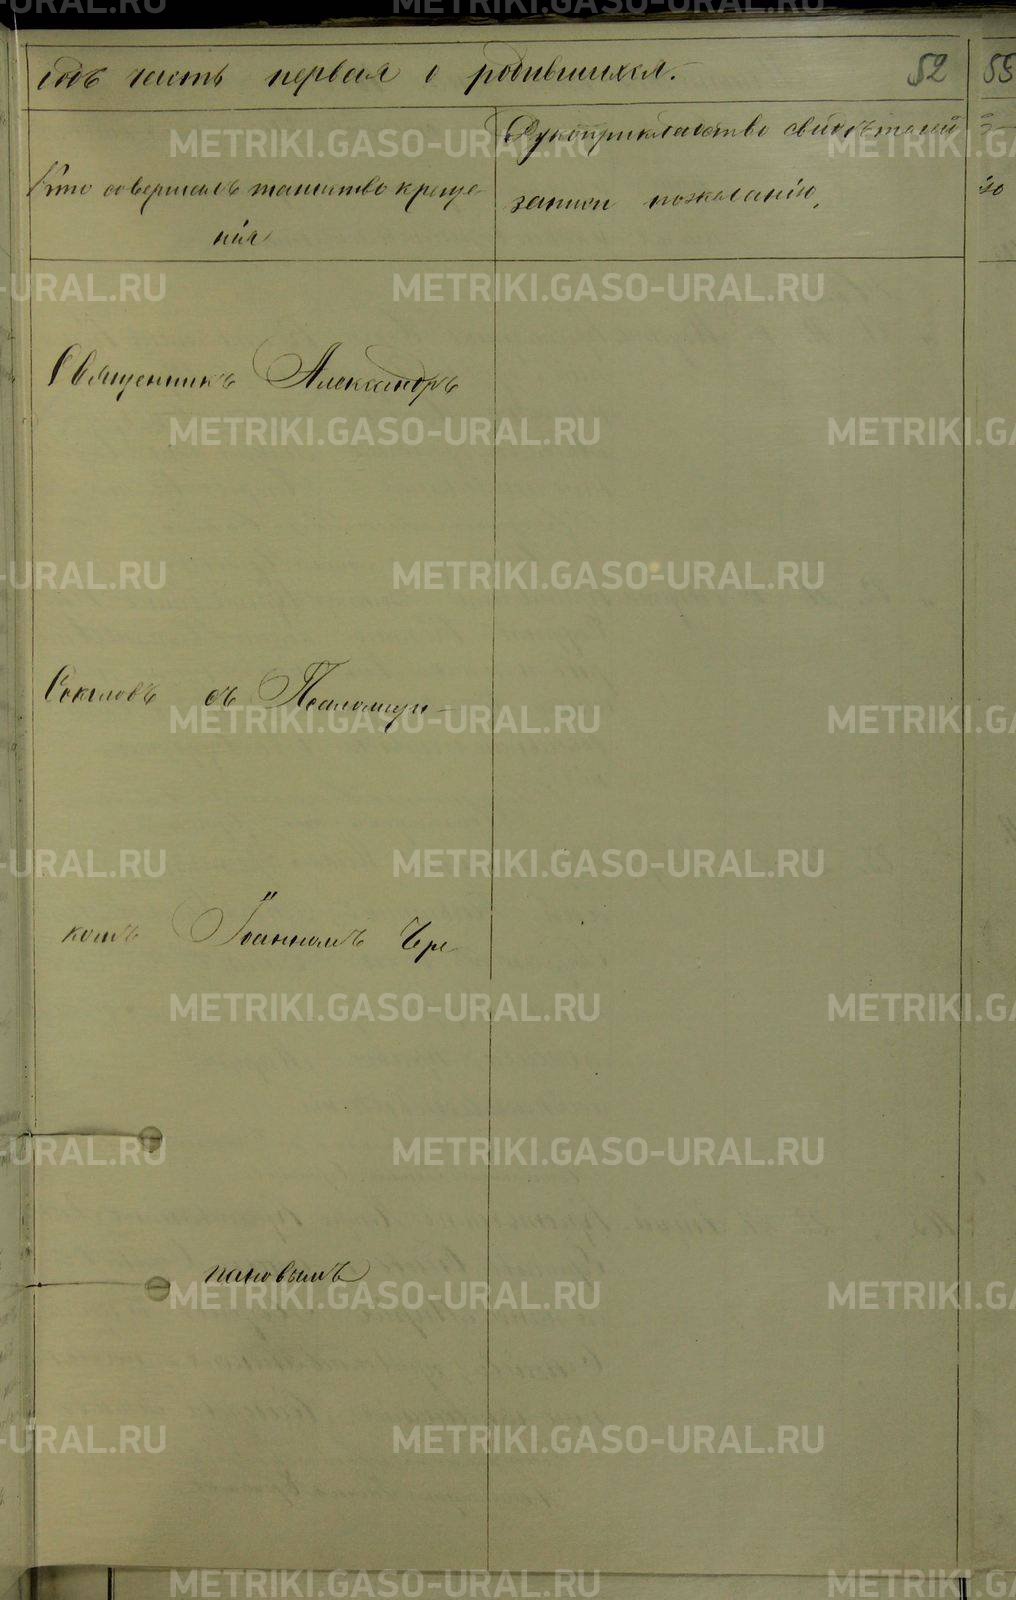 годъ часть первая о родившихся. 52
Кто совершалъ таинство креще-
нія
Рукоприкладство свидѣтелей
записи по желанію.
Священникъ Александръ
Соколовъ съ Псаломщи-
комъ Іоанномъ Чере
пановымъ
53
METRIKI.GASO-URAL.RU